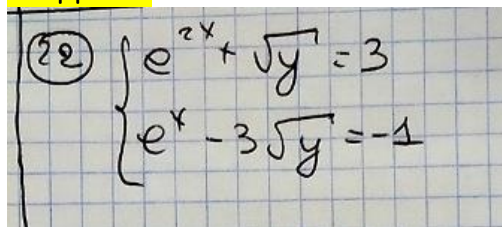 22 e^{2x} + √y = 3
e^x - 3√y = -1